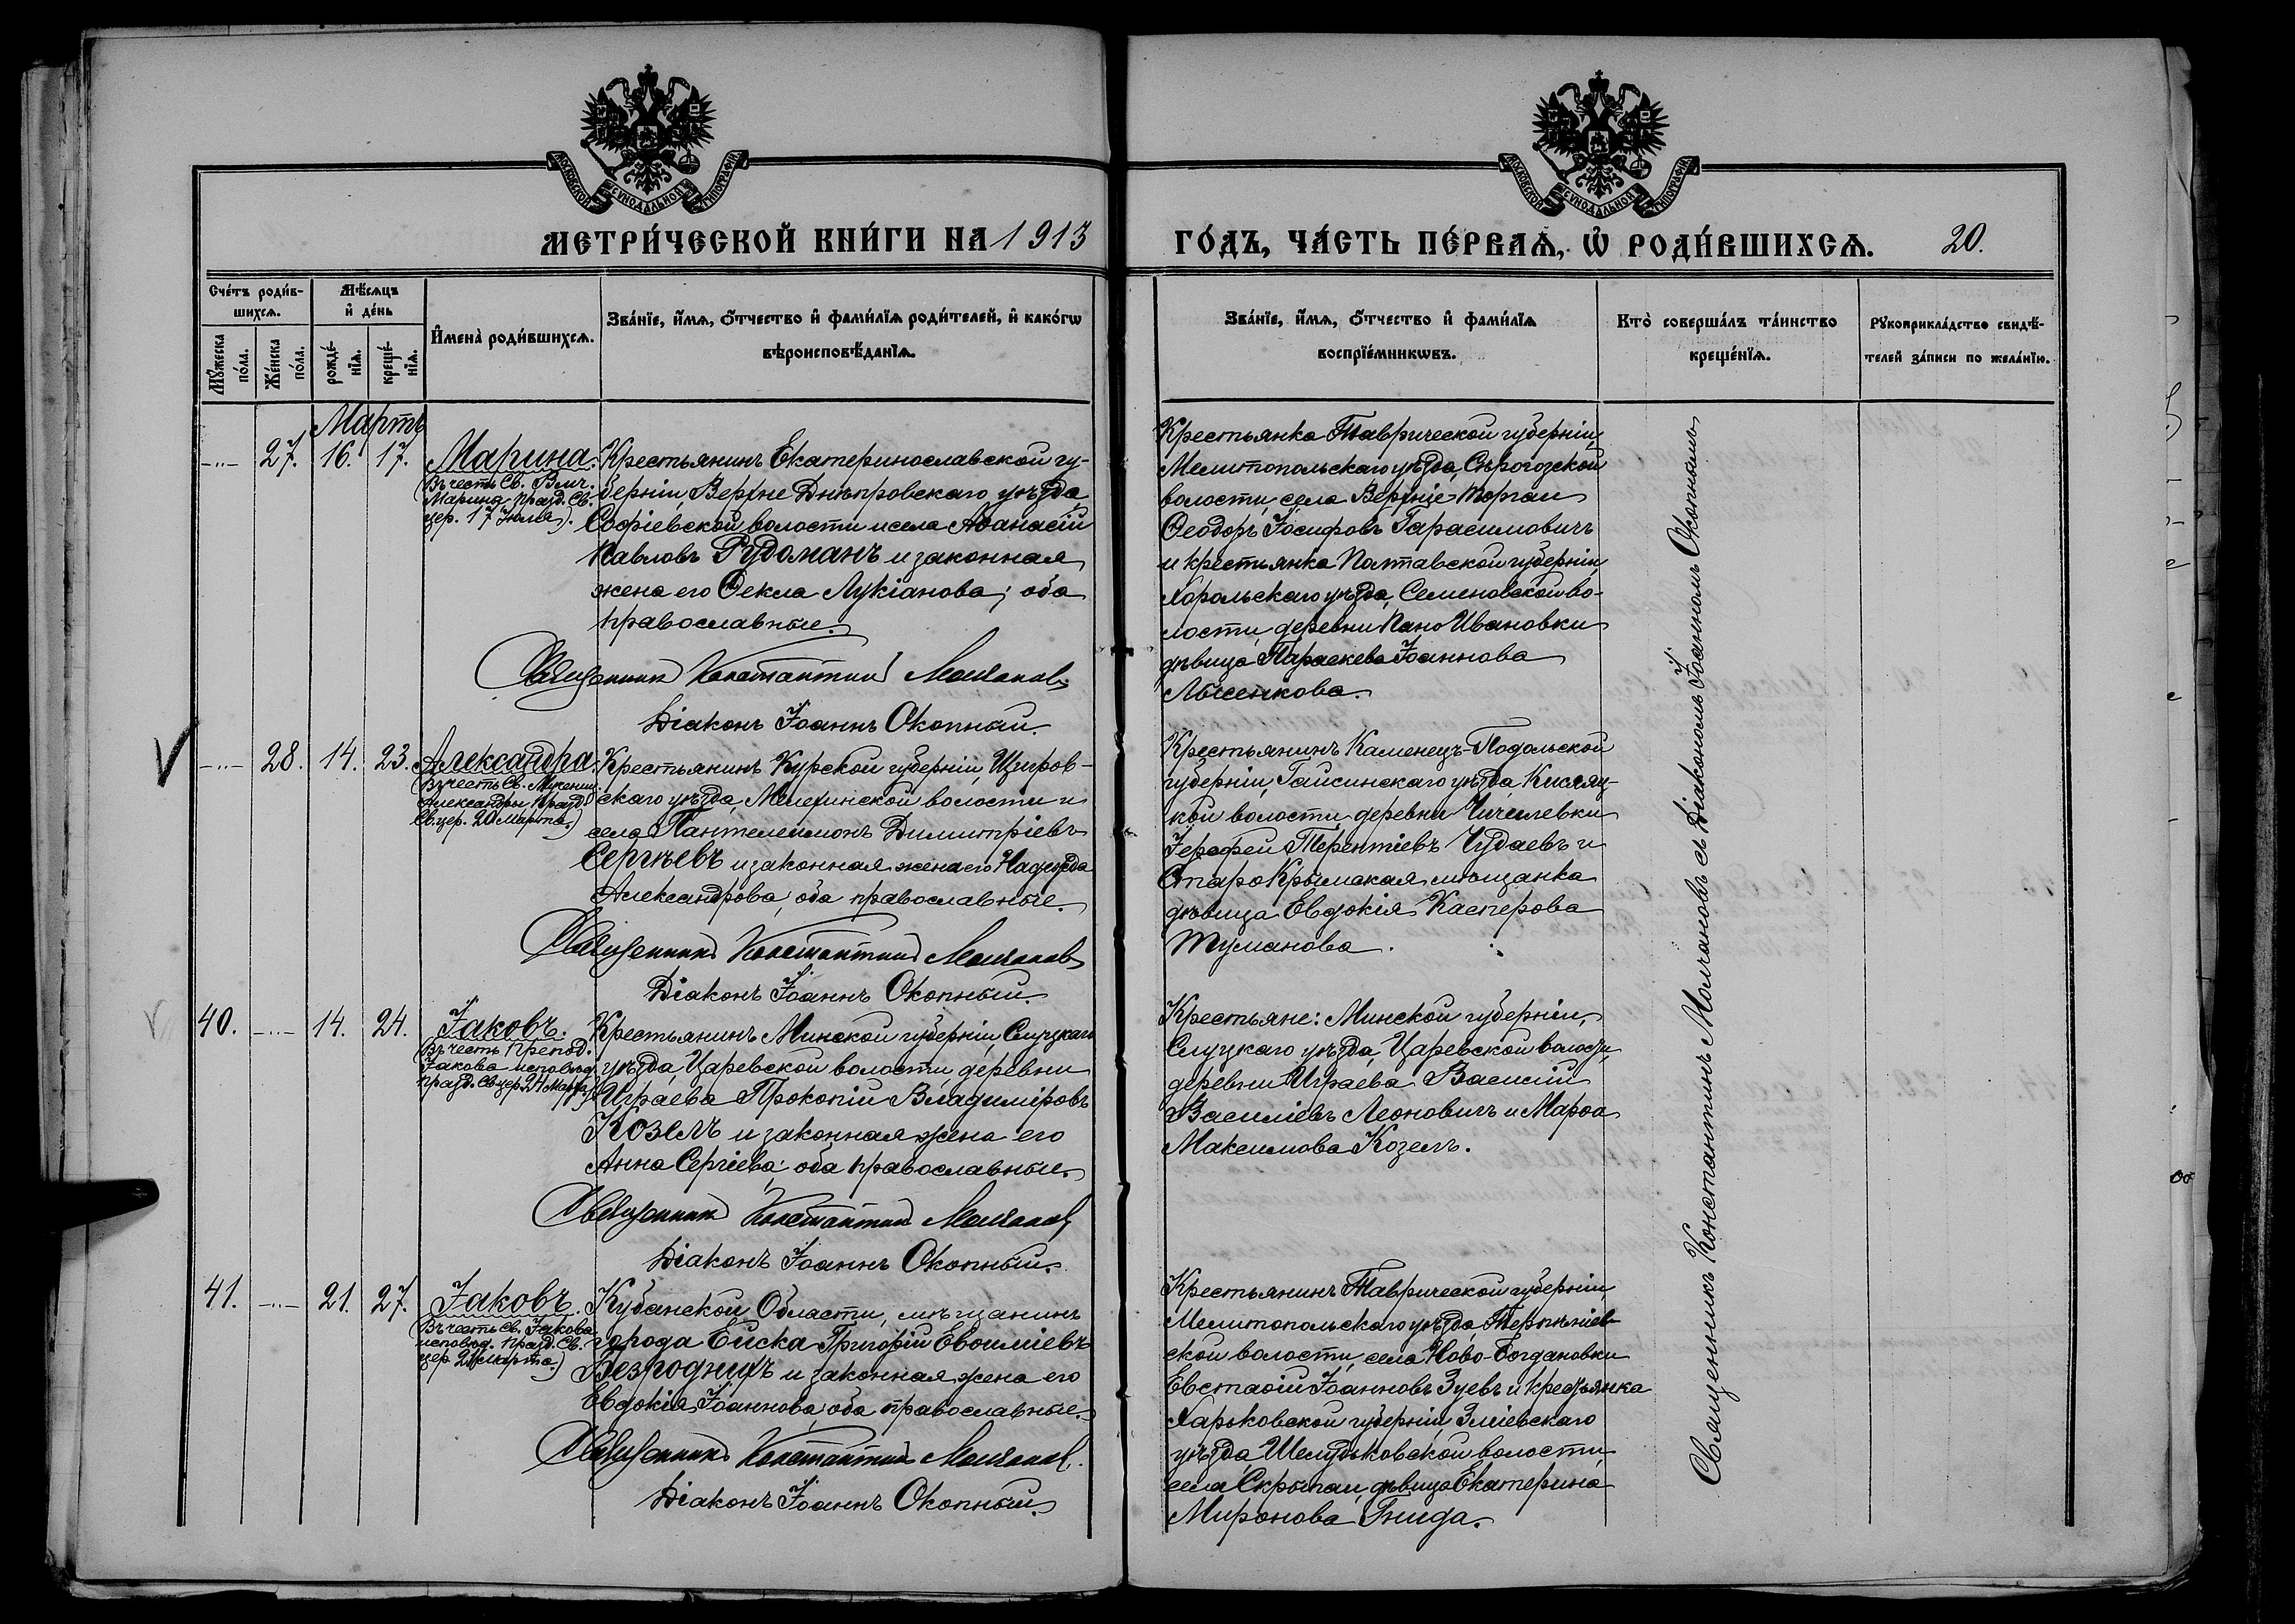 МОСКОВСКОЙ СѴНОДАЛЬНОЙ ТИПОГРАФІИ
МЕТРИ́ЧЕСКОЙ КНИ́ГИ НА 1913
Сче́тъ роди́в-
шихсѧ.
Мѣ́сѧцъ
и҆ де́нь
Мꙋ́жеска
по́ла.
Же́нска
по́ла.
рожде́-
нїѧ.
креще́-
нїѧ.
И҆мена̀ роди́вшихсѧ.
Зва́нїе, и҆́мѧ, ѻ҆́тчество и҆ фами́лїѧ роди́телей, и҆ како́гѡ
вѣроисповѣ́данїѧ.
Мартъ
-"- 27. 16. 17.
Марина.
(Въ честь Св. Влмч.
Марины празд. Св.
цер. 17 Іюля).
Крестьянинъ Екатеринославской гу-
берніи, Верхне Днѣпровскаго уѣзда
Софіевской волости и села Аѳанасій
Павловъ Рудоманъ и законная
жена его Ѳекла Лукіанова; оба
православные.
Священникъ Константинъ Молчановъ
Діаконъ Іоаннъ Окопный.
-"- 28. 14. 23.
Александра
(Въ честь Св. Мученицы
Александры празд.
Св. цер. 20 Марта.)
Крестьянинъ Курской губерніи, Щигров-
скаго уѣзда, Мелехинской волости и
села Пантелеимонъ Димитріевъ
Сергѣевъ и законная жена его Надежда
Александрова; оба православные.
Священникъ Константинъ Молчановъ
Діаконъ Іоаннъ Окопный.
40. -"- 14. 24.
Іаковъ.
(Въ честь Препод.
Іакова исповѣд.
празд. Св. цер. 24 Марта.)
Крестьянинъ Минской губерніи, Слуцкаго
уѣзда, Царевской волости, деревни
Играева Прокопій Владиміровъ
Козелъ и законная жена его
Анна Сергіева; оба православные.
Священникъ Константинъ Молчановъ
Діаконъ Іоаннъ Окопный.
41. -"- 21. 27.
Іаковъ.
(Въ честь Св. Іакова
исповѣд. празд. Св.
цер. 24 Марта.)
Кубанской Области, мѣщанинъ
города Ейска Григорій Евѳиміевъ
Безродный и законная жена его
Евдокія Іоаннова; оба православные.
Священникъ Константинъ Молчановъ.
Діаконъ Іоаннъ Окопный.
МОСКОВСКОЙ СѴНОДАЛЬНОЙ ТИПОГРАФІИ
ГО́ДЪ, ЧА́СТЬ ПЕ́РВАѦ, Ѡ҆ РОДИ́ВШИХСѦ. 20.
Зва́нїе, и҆́мѧ, ѻ҆́тчество и҆ фами́лїѧ
воспрїе́мникѡвъ.
Кто̀ соверша́лъ та́инство
креще́нїѧ.
Рꙋкоприкла́дство свидѣ́-
телей за́писи по жела́нїю.
Крестьянка Таврической губерніи,
Мелитопольскаго уѣзда, Сѣрогозской
волости, села Верхніе-Торгаи
Ѳеодоръ Іосифовъ Гарасимовичъ
и крестьянка Полтавской губерніи,
Хорольскаго уѣзда, Семеновской во-
лости, деревни Пано Ивановки
дѣвица Параскева Іоаннова
Лысенкова.
Крестьянинъ Каменецъ-Подольской
губерніи, Гайсинскаго уѣзда, Кисляц-
кой волости, деревни Чичелевки
Іерофей Терентіевъ Чудаевъ и
Старо Крымская мѣщанка
дѣвица Евдокія Касперова
Туманова.
Крестьяне: Минской губерніи,
Слуцкаго уѣзда, Царевской волости,
деревни Играева Василій
Василіевъ Леоновичъ и Марѳа
Максимова Козелъ.
Крестьянинъ Таврической губерніи
Мелитопольскаго уѣзда, Терпѣніев-
ской волости, села Ново-Богдановки
Евстаѳій Іоанновъ Зуевъ и крестьянка
Харьковской губерніи, Зміевскаго
уѣзда, Шелудьковской волости,
села Скрыпаи, дѣвица Екатерина
Миронова Гнида.
Священникъ Константинъ Молчановъ съ Діакономъ Іоанномъ Окопнымъ